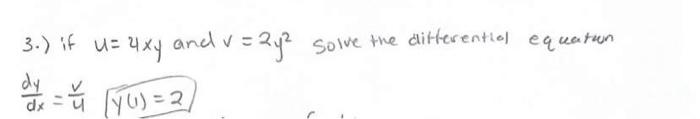 3.) if u = 4xy and v = 2y² solve the differential equation
dy/dx = v/u y(1) = 2